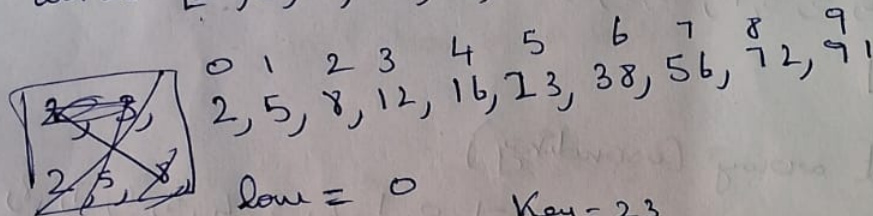 0 1 2 3 4 5 6 7 8 9
2, 5, 8, 12, 16, 23, 38, 56, 72, 91
2, 5, 8,
low = 0 Key = 23